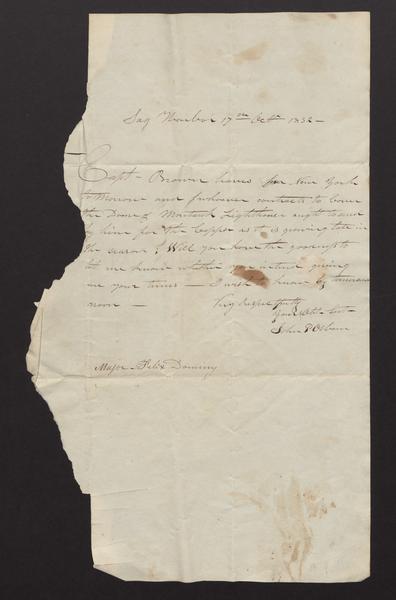 Sag Harbor 17th Octr 1832 –
Capt – Brown leaves for New York
tomorrow and whoever contracts to cover
the Dome of Montauk Lighthouse ought to send
by him for the Copper as it is growing late in
the season & Will you have the goodness to
let me know whether you intend giving
me your terms – I wish to hear by tomorrow
noon –
Very Respectfully
Your Obt Sert
John P Osborn
Major Felix Dominy